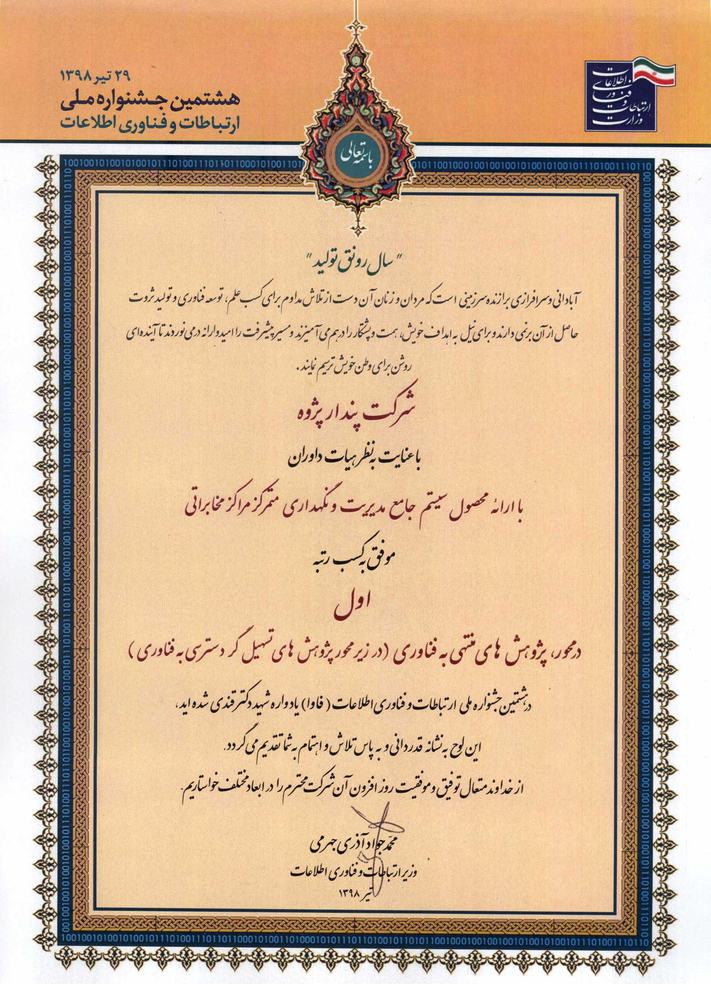 ۲۹ تیر ۱۳۹۸
هشتمین جشنواره ملی
ارتباطات و فناوری اطلاعات
وزارت ارتباطات و فناوری اطلاعات
باسمه تعالی
"سال رونق تولید"
آبادانی و سرافرازی برازنده سرزمینی است که مردان و زنان آن دست از تلاش مداوم برای کسب علم، توسعه فناوری و تولید ثروت
حاصل از آن برنمی دارند و برای نیل به اهداف خویش، همت و پشتکار را در هم می آمیزند و مسیر پیشرفت را امیدوارانه درمی نوردند تا آینده ای
روشن برای وطن خویش ترسیم نمایند.
شرکت پندار پژوه
با عنایت به نظر هیات داوران
با ارائه محصول سیستم جامع مدیریت و نگهداری متمرکز مراکز مخابراتی
موفق به کسب رتبه
اول
در محور، پژوهش های منتهی به فناوری (در زیر محور پژوهش های تسهیل گر دسترسی به فناوری)
در هشتمین جشنواره ملی ارتباطات و فناوری اطلاعات (فاوا) یادواره شهید دکتر قندی شده اید،
این لوح به نشانه قدردانی و به پاس تلاش و اهتمام به شما تقدیم می گردد.
از خداوند متعال توفیق و موفقیت روز افزون آن شرکت محترم را در ابعاد مختلف خواستاریم.
محمد جواد آذری جهرمی
وزیر ارتباطات و فناوری اطلاعات
تیر ۱۳۹۸